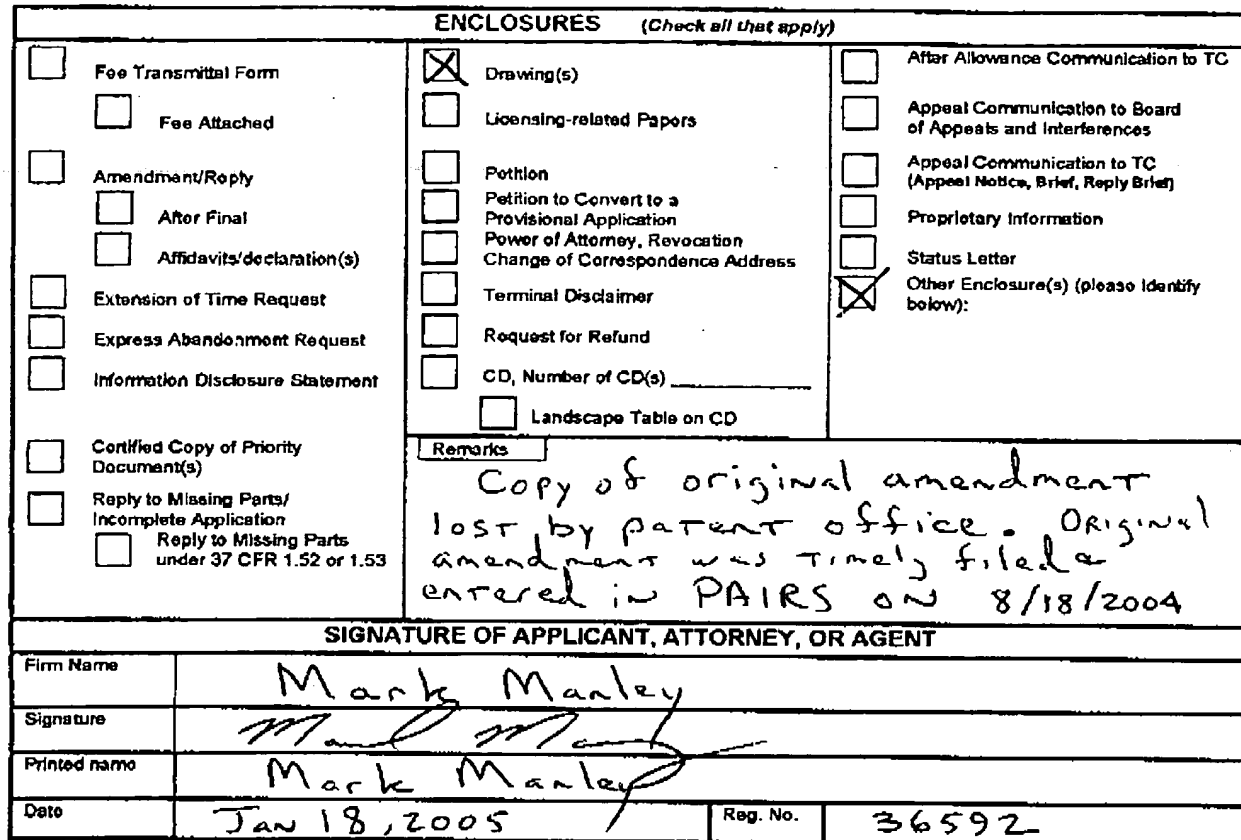 ENCLOSURES (Check all that apply)
Fee Transmittal Form
Fee Attached
Amendment/Reply
After Final
Affidavits/declaration(s)
Extension of Time Request
Express Abandonment Request
Information Disclosure Statement
Certified Copy of Priority
Document(s)
Reply to Missing Parts/
Incomplete Application
Reply to Missing Parts
under 37 CFR 1.52 or 1.53
Drawing(s)
Licensing-related Papers
Petition
Petition to Convert to a
Provisional Application
Power of Attorney, Revocation
Change of Correspondence Address
Terminal Disclaimer
Request for Refund
CD, Number of CD(s)
Landscape Table on CD
After Allowance Communication to TC
Appeal Communication to Board
of Appeals and Interferences
Appeal Communication to TC
(Appeal Notice, Brief, Reply Brief)
Proprietary Information
Status Letter
Other Enclosure(s) (please Identify
below):
Remarks
Copy of original amendment
lost by patent office. Original
amendment was timely filed &
entered in PAIRS on 8/18/2004
SIGNATURE OF APPLICANT, ATTORNEY, OR AGENT
Firm Name Mark Manley
Signature
Printed name Mark Manley
Date Jan 18, 2005 Reg. No. 36592